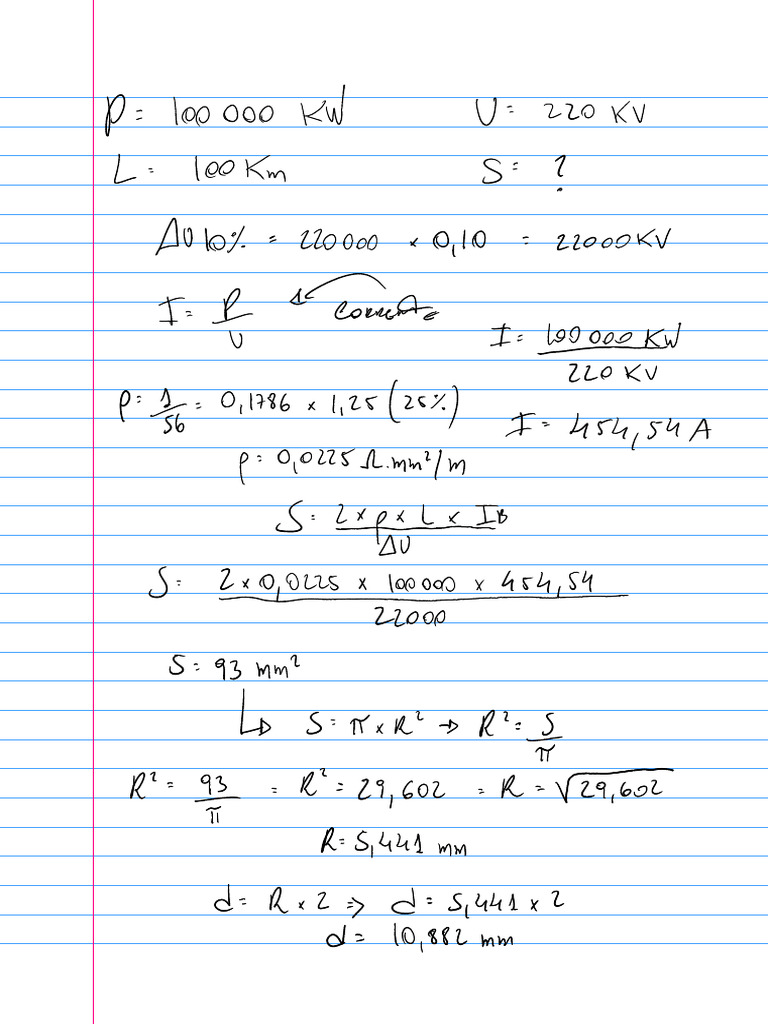 P = 100 000 KW U = 220 KV
L = 100 Km S = ?
ΔU 10% = 220000 × 0,10 = 22000 KV
I = P/U ← Corrente
I = 100 000 KW / 220 KV
ρ = 1/56 = 0,1786 × 1,25 (25%)
I = 454,54 A
ρ = 0,0225 Ω.mm²/m
S = 2 × ρ × L × IB / ΔU
S = 2 × 0,0225 × 100 000 × 454,54 / 22000
S = 93 mm²
↳ S = π × R² → R² = S/π
R² = 93/π = R² = 29,602 = R = √29,602
R = 5,441 mm
d = R × 2 => d = 5,441 × 2
d = 10,882 mm